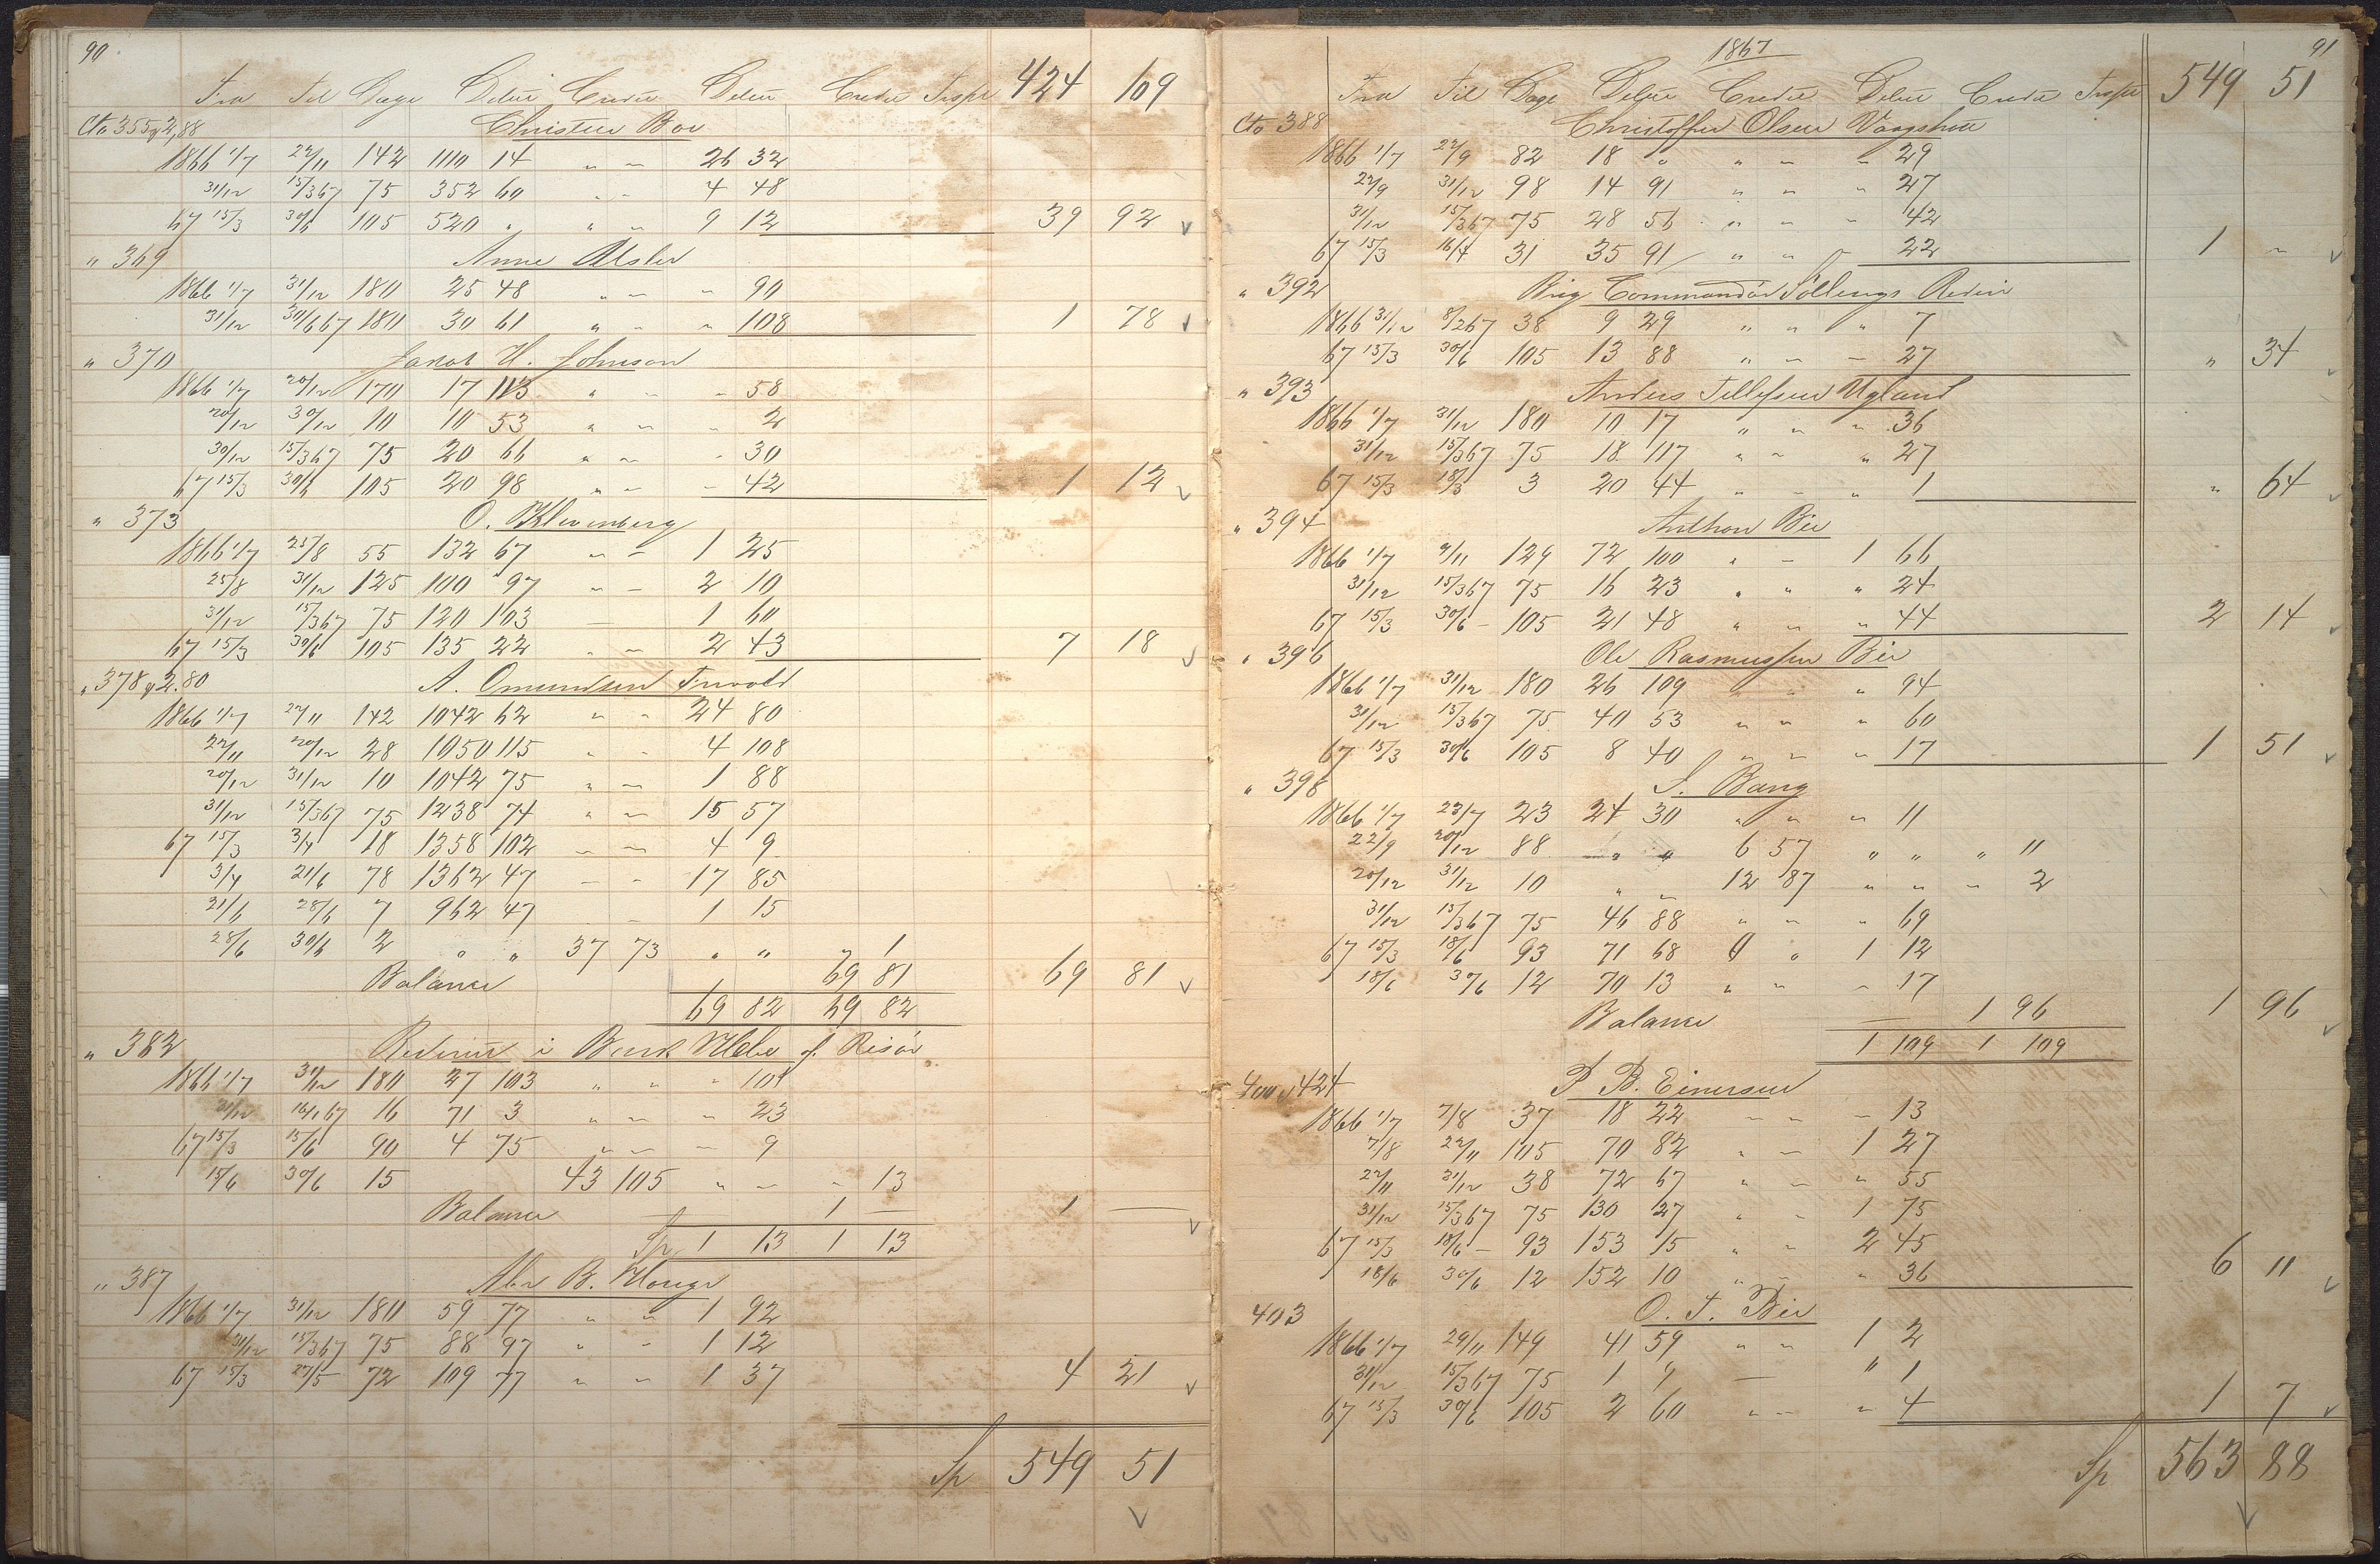 90
Fra Til Dage Debet Credit Debet Credit Transp 424 109
Cto 355 & 2,88 Christen Boe
1866 1/7 22/11 142 1110 14 " " 26 32
31/12 15/3 67 75 352 60 " " 4 48
67 15/3 30/6 105 520 " " " 9 12 39 92
" 369 Anne
1866 1/7 31/12 180 25 48 " " " 90
31/12 30/6 67 180 30 61 " " " 108 1 78
" 370 Jakob H. Johnson
1866 1/7 20/12 170 17 113 " " 58
20/12 30/12 10 10 53 " " " 2
30/12 15/3 67 75 20 66 " " " 30
67 15/3 30/6 105 20 98 " " " 42 1 12
" 373 O.
1866 1/7 25/8 55 132 67 " " 1 25
25/8 31/12 125 100 97 " " 2 10
31/12 15/3 67 75 120 103 — 1 60
67 15/3 30/6 105 135 22 " " 2 43 7 18
" 378 & 2.80 A. Omundsen
1866 1/7 22/11 142 1042 62 " " 24 80
22/11 20/12 28 1050 115 " " 4 108
20/12 31/12 10 1042 75 " " 1 88
31/12 15/3 67 75 1238 74 " " 15 57
67 15/3 3/4 18 1358 102 " " 4 9
3/4 21/6 78 1362 47 " " 17 85
21/6 28/6 7 962 47 " " 1 15
28/6 30/6 2 " " 37 73 " " " 1
Balance 69 81 69 81
69 82 69 82
" 382 Rederiet i Bark Hebe af Risør
1866 1/7 31/12 180 27 103 " " " 101
31/12 16/1 67 16 71 3 " " " 23
67 15/3 15/6 90 4 75 " " " 9
15/6 30/6 15 43 105 " " " 13
Balance — 1 — 1 —
Sp 1 13 1 13
" 387 Abr B. Houge
1866 1/7 31/12 180 59 77 " " 1 92
31/12 15/3 67 75 88 97 " " 1 12
67 15/3 27/5 72 109 77 " " 1 37 4 21
Sp 549 51
1867 91
Fra Til Dage Debet Credit Debet Credit Transp 549 51
Cto 388 Christoffer Olsen
1866 1/7 22/9 82 18 " " " " 29
22/9 31/12 98 14 91 " " " 27
31/12 15/3 67 75 28 56 " " " 42
67 15/3 16/4 31 35 91 " " " 22 1 "
" 392 Brig Commandör Söllings Rederi
1866 31/12 8/2 67 38 9 29 " " " 7
67 15/3 30/6 105 13 88 " " " 27 " 34
" 393 Anders Tellefsen Ugland
1866 1/7 31/12 180 10 17 " " " 36
31/12 15/3 67 75 18 117 " " " 27
67 15/3 18/3 3 20 44 " " " 1 " 64
" 394 Anthon Bie
1866 1/7 9/11 129 72 100 " " 1 66
31/12 15/3 67 75 16 23 " " " 24
67 15/3 30/6 105 21 48 " " " 44 2 14
" 396 Ole Rasmussen Bie
1866 1/7 31/12 180 26 109 " " " 94
31/12 15/3 67 75 40 53 " " " 60
67 15/3 30/6 105 8 40 " " " 17 1 51
" 398 S. Bang
1866 1/7 23/7 23 24 30 " " " 11
22/9 20/12 88 " " 6 57 " " " 11
20/12 31/12 10 " " 12 87 " " " 2
31/12 15/3 67 75 46 88 " " " 69
67 15/3 18/6 93 71 68 " " 1 12
18/6 30/6 12 70 13 " " " 17
Balance — 1 96 1 96
1 109 1 109
400 & 424 P B. Einersen
1866 1/7 7/8 37 18 22 " " " 13
7/8 22/11 105 70 82 " " 1 27
22/11 31/12 38 72 67 " " " 55
31/12 15/3 67 75 130 27 " " 1 75
67 15/3 18/6 93 153 15 " " 2 45
18/6 30/6 12 152 10 " " " 36 6 11
403 O. T. Bie
1866 1/7 29/11 149 41 59 " " 1 2
31/12 15/3 67 75 1 " — " 1
67 15/3 30/6 105 2 60 " " " 4 1 7
Sp 563 88